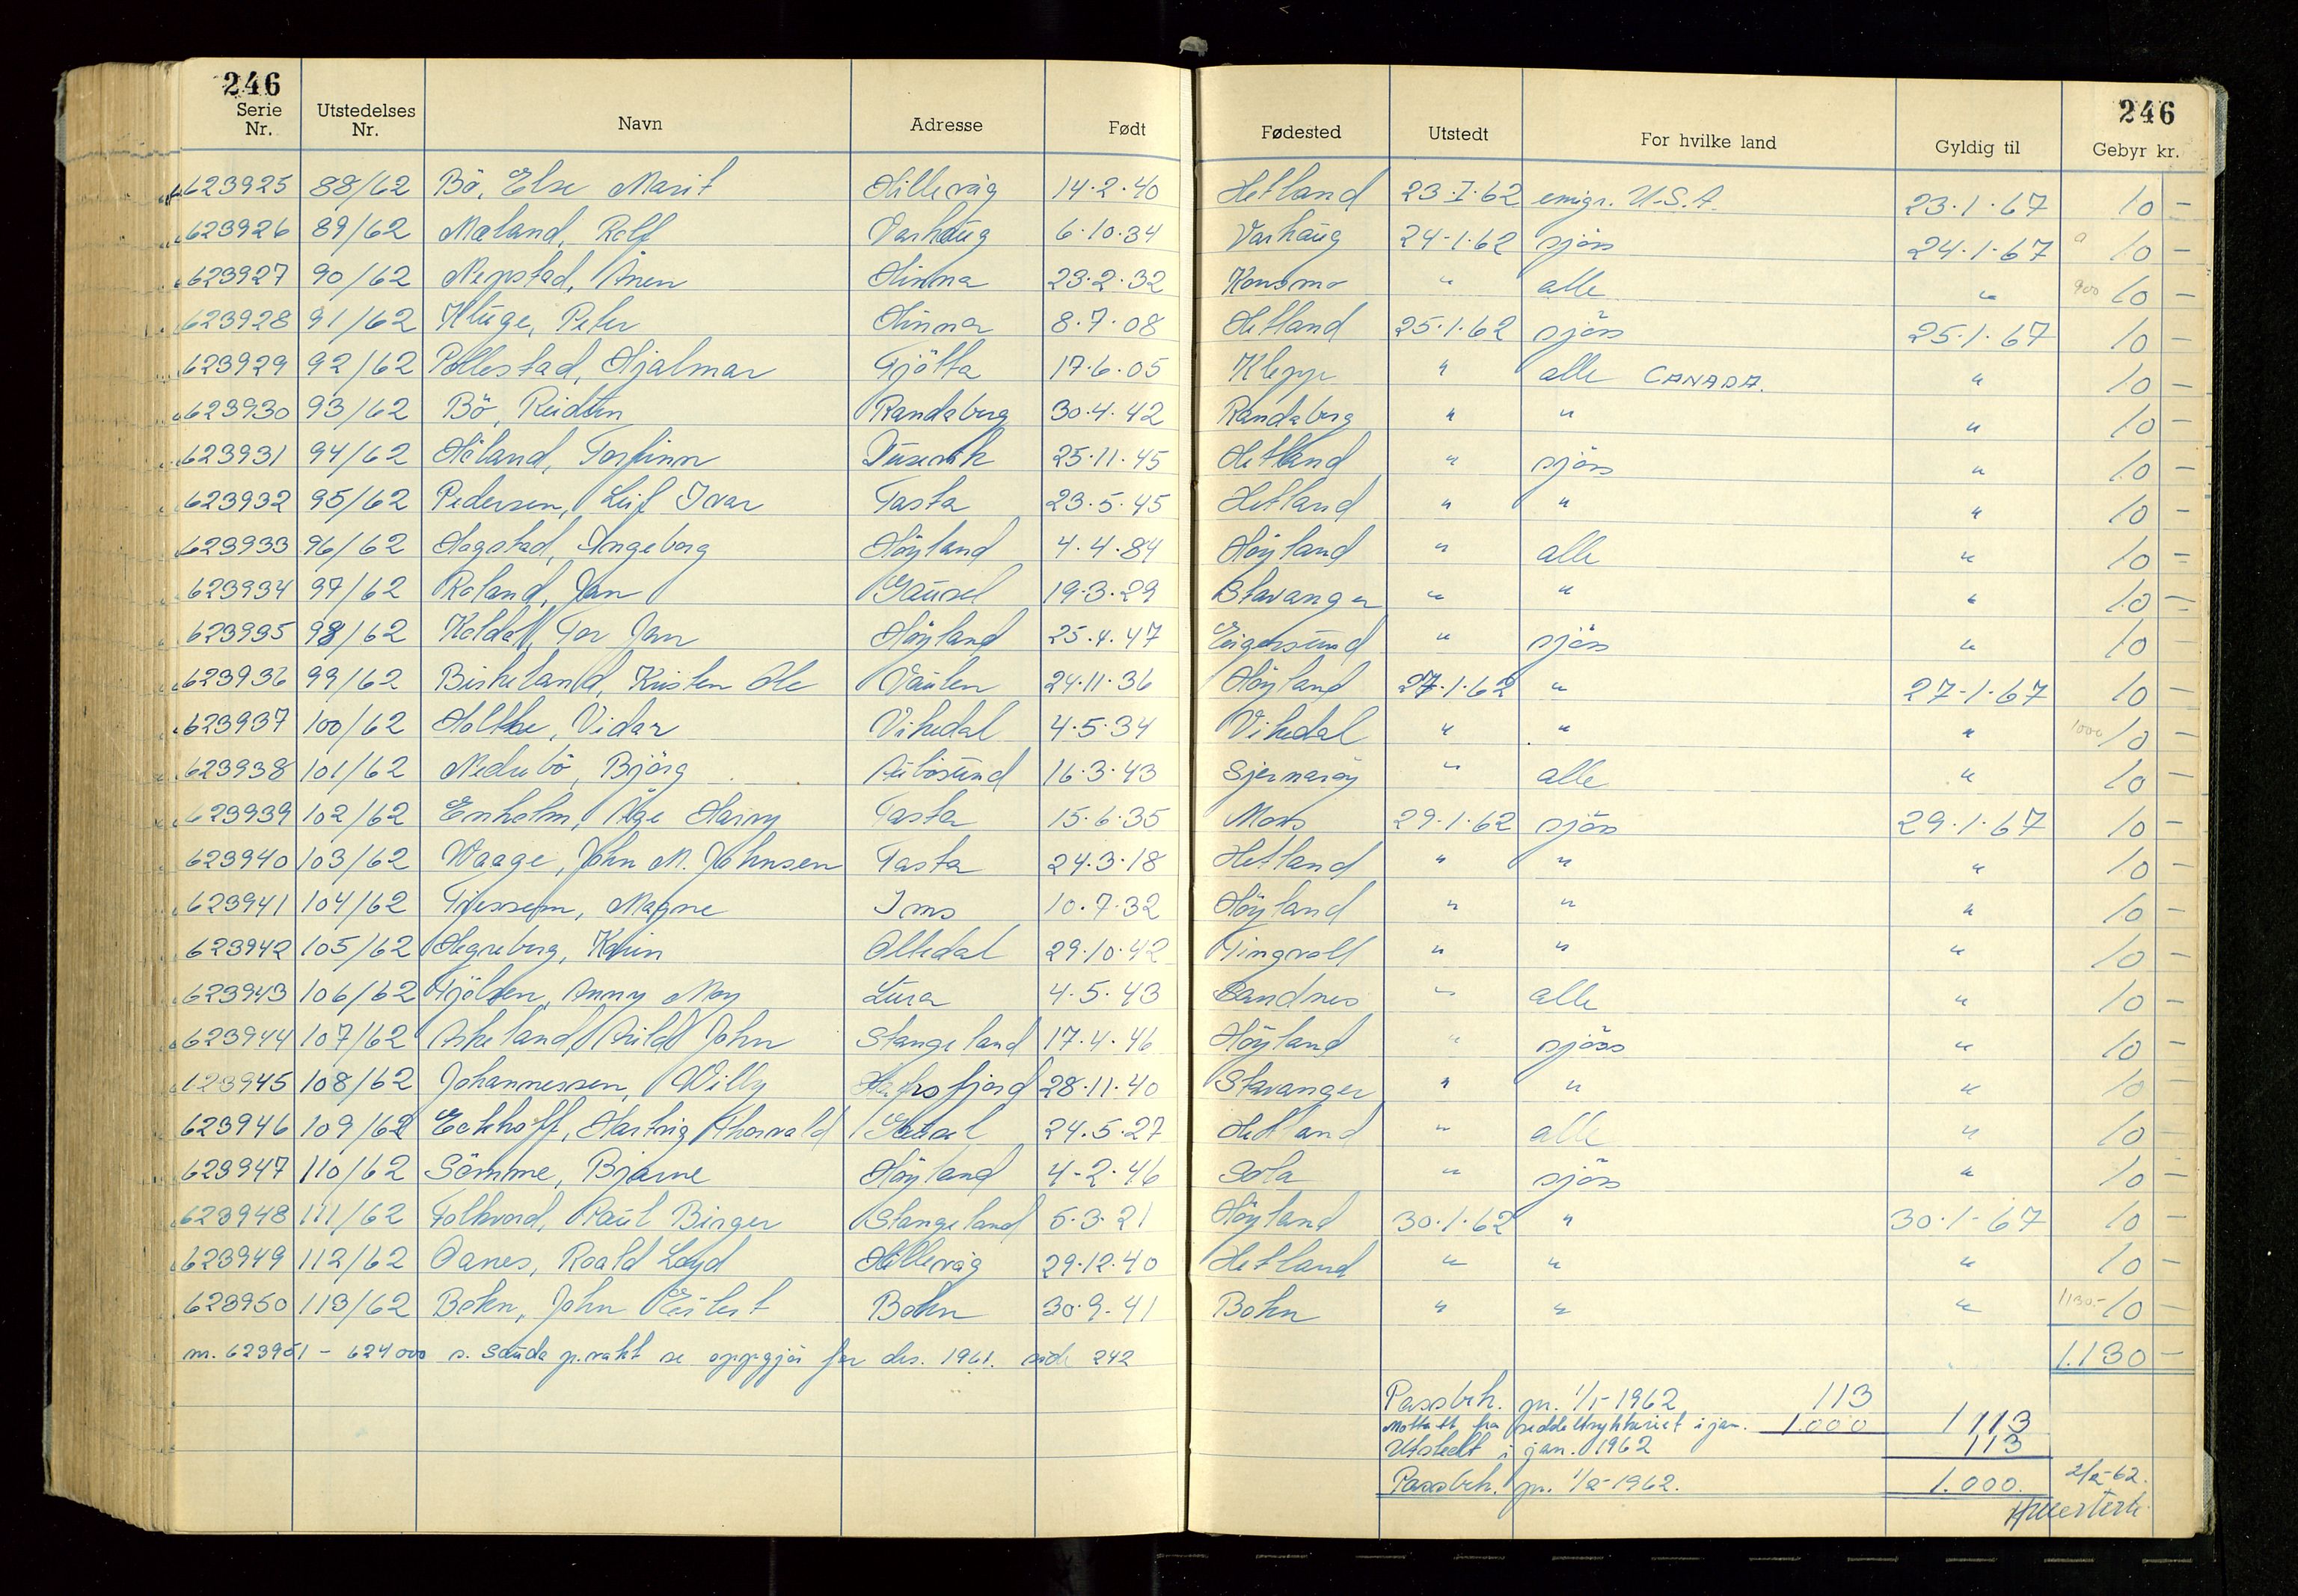 246 246
Serie Nr. Utstedelses Nr. Navn Adresse Født Fødested Utstedt For hvilke land Gyldig til Gebyr kr.
623925 88/62 Bö, Else Marit Hillevåg 14.2.40 Hetland 23.I.62 emigr. U.S.A. 23.1.67 10 –
623926 89/62 Mæland, Rolf Varhaug 6.10.34 Varhaug 24.1.62 sjöss 24.1.67 10 –
623927 90/62 Nepstad, Ånen Hinna 23.2.32 Konsmo " alle " 900 10 –
623928 91/62 Kluge, Peter Hinna 8.7.08 Hetland 25.1.62 sjöss 25.1.67 10 –
623929 92/62 Pollestad, Hjalmar Tjötta 17.6.05 Klepp " alle CANADA. " 10 –
623930 93/62 Bö, Reidun Randaberg 30.4.42 Randaberg " " " 10 –
623931 94/62 Håland, Torfinn Dusevik 25.11.45 Hetland " sjöss " 10 –
623932 95/62 Pedersen, Leif Ivar Tasta 23.5.45 Hetland " " " 10 –
623933 96/62 Hogstad, Ingeborg Höyland 4.4.84 Höyland " alle " 10 –
623934 97/62 Roland, Jan Gausel 19.3.29 Stavanger " " " 10 –
623935 98/62 Koldal, Tor Jan Höyland 25.4.47 Eigersund " sjöss " 10 –
623936 99/62 Birkeland, Kristen Ole Vaulen 24.11.36 Höyland 27.1.62 " 27-1-67 10 –
623937 100/62 Holthe, Vidar Vikedal 4.5.34 Vikedal " " " 1000 10 –
623938 101/62 Nedrebö, Björg Aubösund 16.3.43 Sjernaröy " alle " 10 –
623939 102/62 Enholm, Åge Harry Tasta 15.6.35 Moss 29.1.62 sjöss 29.1.67 10 –
623940 103/62 Waage, John M. Johnsen Tasta 24.3.18 Hetland " " " 10 –
623941 104/62 Tressem, Magne Ims 10.7.32 Höyland " " " 10 –
623942 105/62 Hegreberg, Karin Oltedal 29.10.42 Tingvoll " " " 10 –
623943 106/62 Tjölsen, Anny May Lura 4.5.43 Sandnes " alle " 10 –
623944 107/62 Askeland, Arild John Stangeland 17.4.46 Höyland " sjöss " 10 –
623945 108/62 Johannessen, Willy Hafrsfjord 28.11.40 Stavanger " " " 10 –
623946 109/62 Eckhoff, Hartvig Thorvald 24.5.27 Hetland " alle " 10 –
623947 110/62 Sömme, Bjarne Höyland 4-2.46 Sola " sjöss " 10 –
623948 111/62 Folkvord, Paul Birger Stangeland 5.3.21 Höyland 30.1.62 " 30.1-67 10 –
623949 112/62 Oanes, Roald Loyd Hillevåg 29.12.40 Hetland " " " 10 –
623950 113/62 Bokn, John Eilert Bokn 30.9.41 Bokn " " " 1130.- 10 –
nr. 623951 – 624000 s. Sauda p.vakt se oppgjör for des. 1961. side 242 1.130 –
Passbeh. pr. 1/1-1962 113
Mottatt fra seddeltrykkeriet i jan. 1.000 1113
Utstedt i jan. 1962 113
Passbeh. pr. 1/2-1962. 1.000. 2/2-62.